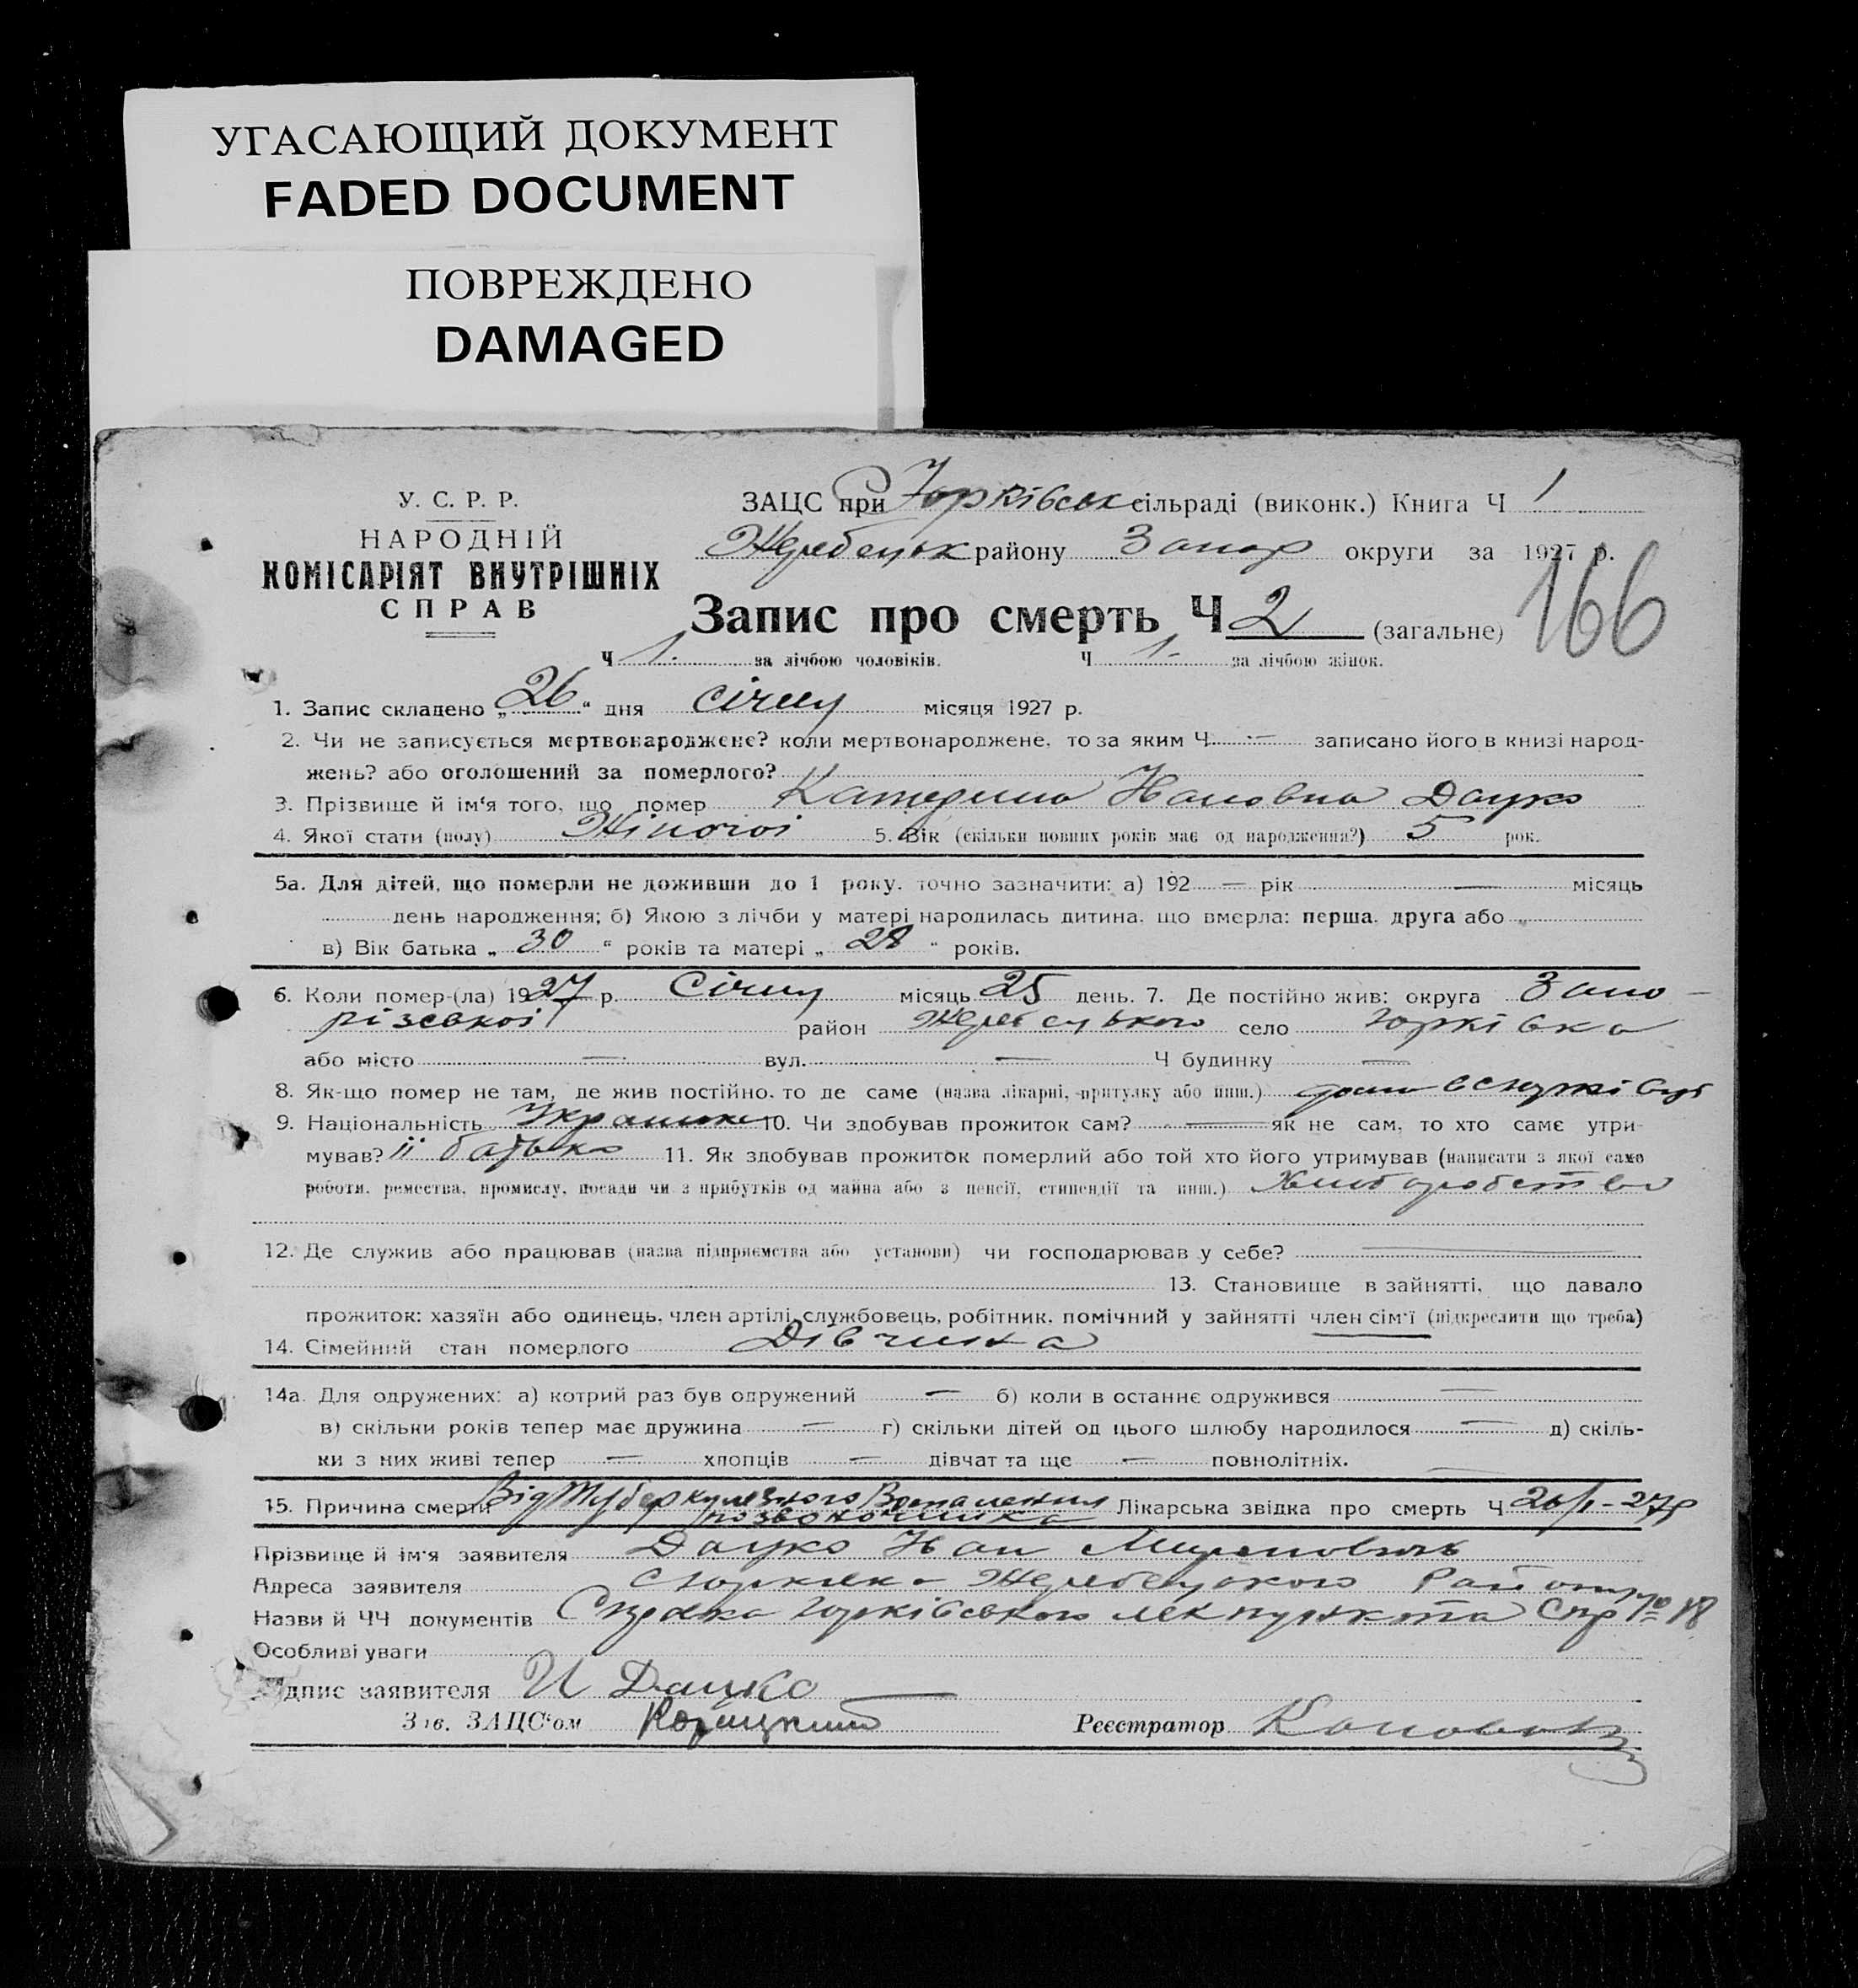 УГАСАЮЩИЙ ДОКУМЕНТ
FADED DOCUMENT
ПОВРЕЖДЕНО
DAMAGED
У. С. Р. Р.
НАРОДНІЙ
КОМІСАРІЯТ ВНУТРІШНІХ
СПРАВ
ЗАЦС при Юрківськ сільраді (виконк.) Книга Ч 1
Жеребецьк району Запор округи за 1927 р.
166
Запис про смерть Ч 2 (загальне)
Ч 1. за лічбою чоловіків. Ч 1. за лічбою жінок.
1. Запис складено „26“ дня січня місяця 1927 р.
2. Чи не записується мертвонароджене? коли мертвонароджене, то за яким Ч — записано його в книзі народ-
жень? або оголошений за померлого?
3. Прізвище й ім‘я того, що помер Катерина Ивановна Дацко
4. Якої стати (полу) Жіночої 5. Вік (скільки повних років має од народження?) 5 рок.
5а. Для дітей, що померли не доживши до 1 року, точно зазначити: а) 192 — рік — місяць
день народження; б) Якою з лічби у матері народилась дитина, що вмерла: перша, друга або „
в) Вік батька „ 30 “ років та матері „ 28 “ років.
6. Коли помер-(ла) 1927 р. Січня місяць 25 день. 7. Де постійно жив: округа Запо-
різської район Жеребецького село Юрківка
або місто — вул. — Ч будинку —
8. Як-що помер не там, де жив постійно, то де саме (назва лікарні, притулку або инш.)
9. Національність 10. Чи здобував прожиток сам? — як не сам, то хто саме утри-
мував? її батько 11. Як здобував прожиток померлий або той хто його утримував (написати з якої саме
роботи, ремества, промислу, посади чи з прибутків од майна або з пенсії, стипендії та инш.) Хліборобство
12. Де служив або працював (назва підприємства або установи) чи господарював у себе? —
13. Становище в зайнятті, що давало
прожиток: хазяїн або одинець, член артілі, службовець, робітник, помічний у зайнятті член сім‘ї (підкреслити що треба)
14. Сімейний стан померлого Дівчина
14а. Для одружених: а) котрий раз був одружений — б) коли в останнє одружився —
в) скільки років тепер має дружина — г) скільки дітей од цього шлюбу народилося — д) скіль-
ки з них живі тепер — хлопців — дівчат та ще — повнолітніх.
15. Причина смерти Від Туберкулезного Воспаления Лікарська звідка про смерть Ч 26/I-27р
позвоночника
Прізвище й ім‘я заявителя Дацко Иван Миронович
Адреса заявителя с Юрківка Жеребецького Району
Назви й ЧЧ документів Справка Юрківського лекпункта Спр № 18
Особливі уваги
Підпис заявителя И Дацко
Зав. ЗАЦС‘ом
Реєстратор